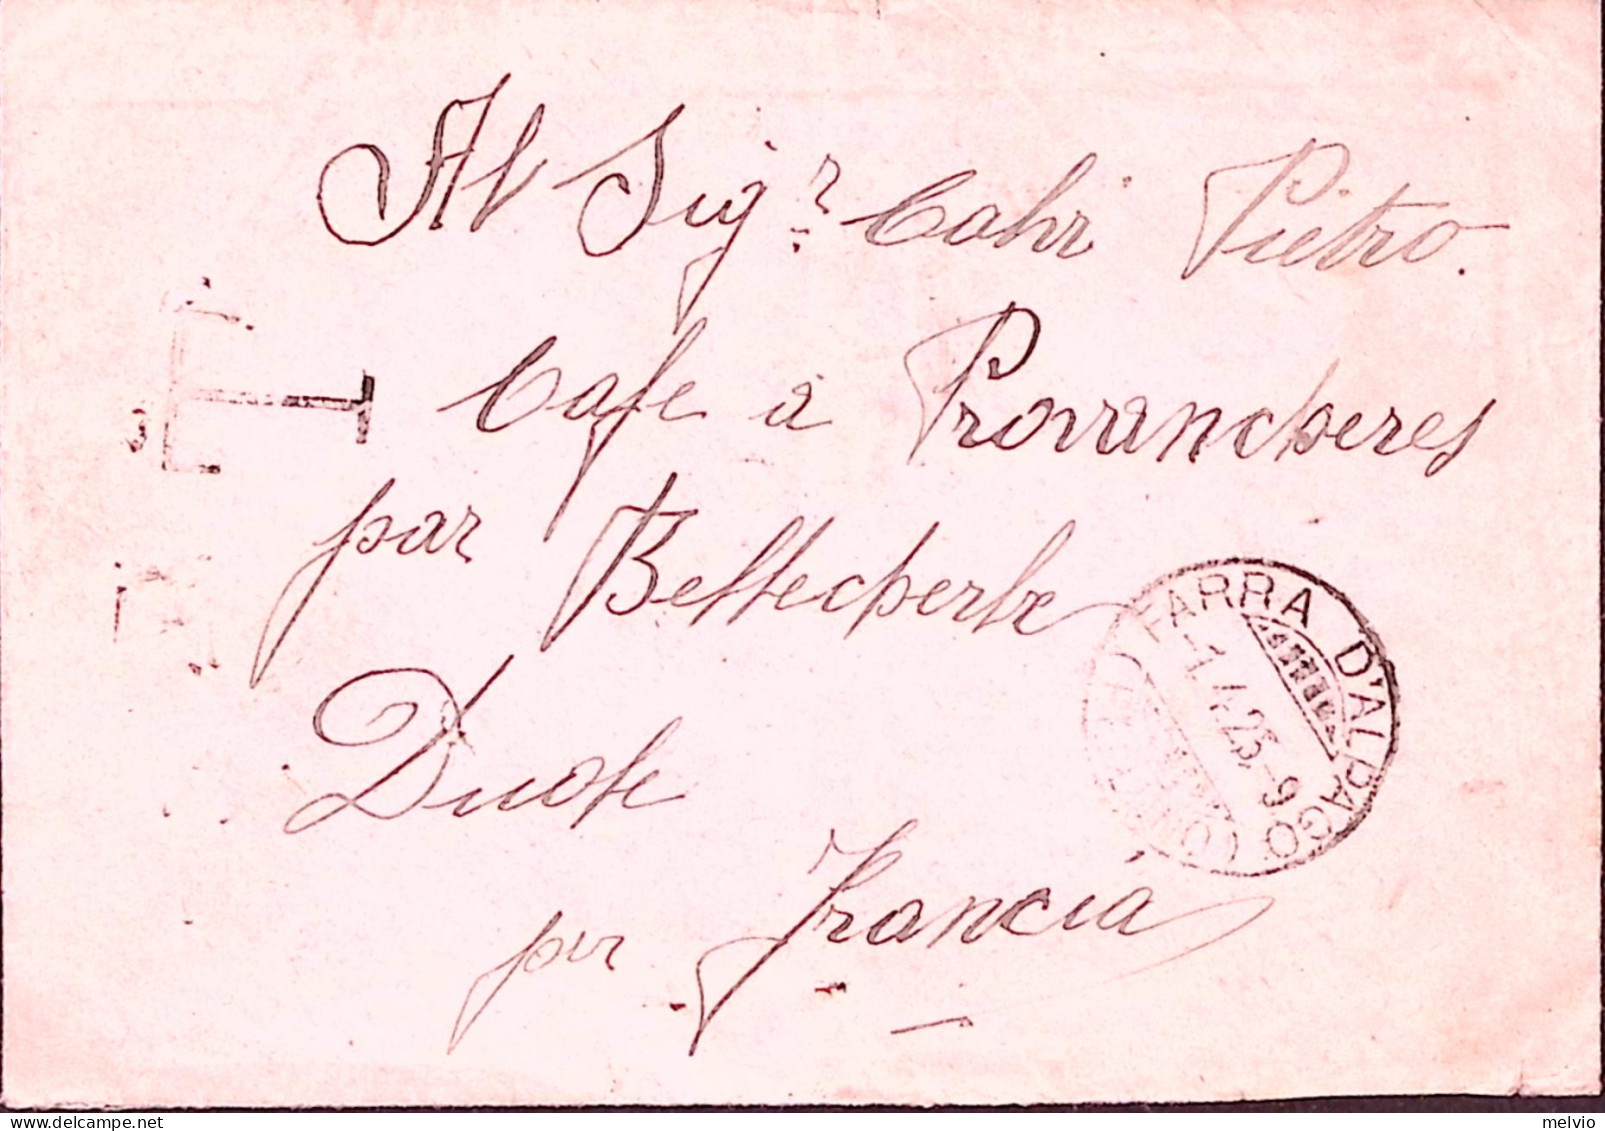 Al Sigr. Cahi Pietro.
Cafe a Provancheres
par Bellecherbe
Duob
per Francia
FARRA D'ALPAGO
-1.4.25.-9
T
melvio